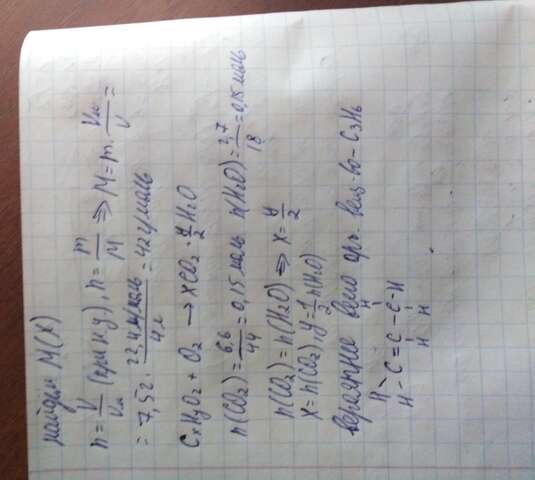 найдём M(X)
n = V/Vм (при н.у), n = m/M ⇒ M = m · Vм/V =
= 7,5г · 22,4л/моль / 4л = 42 г/моль
CxHyO2 + O2 → xCO2 · y/2 H2O
n(CO2) = 6,6/44 = 0,15 моль n(H2O) = 2,7/18 = 0,15 моль
n(CO2) = n(H2O) ⇒ x = y/2
x = n(CO2), y = 1/2 n(H2O)
вероятнее всего орг. вещ-во - C3H6
H H
H - C = C - C - H
H H